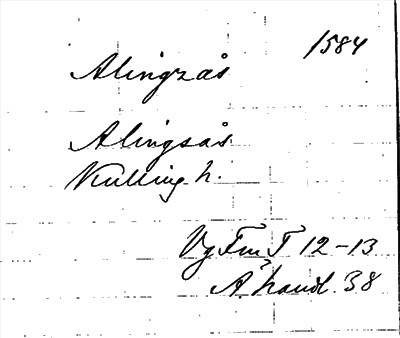 1584
Alingzås
Alingsås
Kulling h.
Vg Fm T 12-13
Å handl. 38